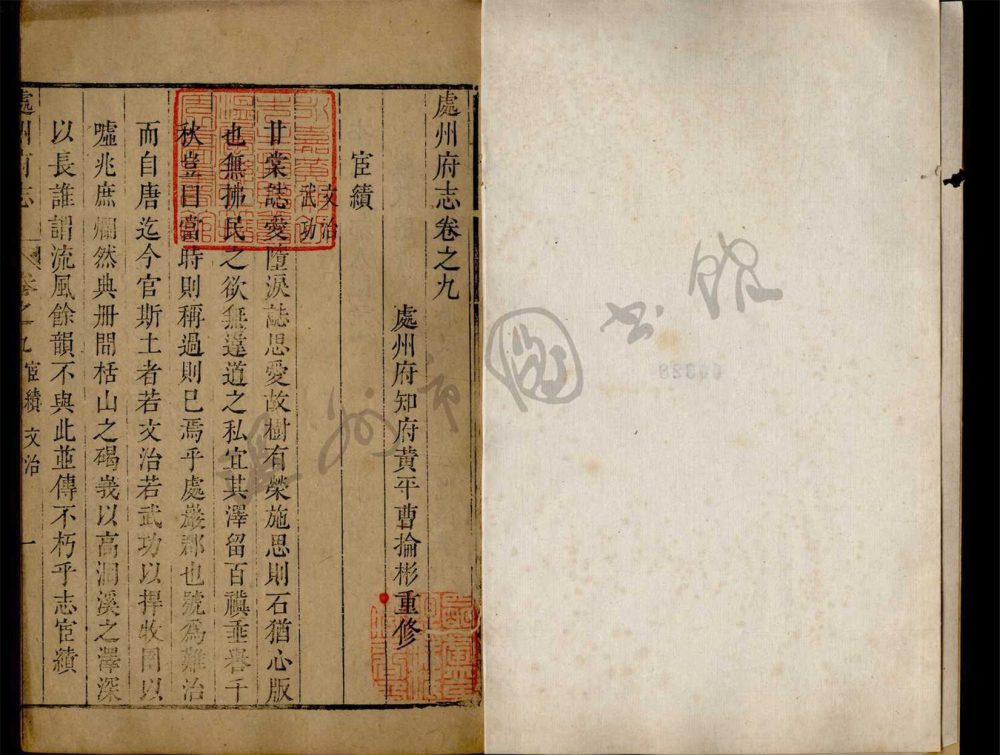 處州府志卷之九
處州府知府黃平曹掄彬重修
宦績
文治
武功
甘棠誌愛墮淚誌思愛故樹有榮施思則石猶心版
也無拂民之欲無違道之私宜其澤留百禩垂譽千
秋豈曰當時則稱過則已焉乎處嚴郡也號為難治
而自唐迄今官斯土者若文治若武功以捍牧圉以
噓兆庶爛然典冊間栝山之碣峩以高洞溪之澤深
以長誰謂流風餘韻不與此並傳不朽乎志宦績
處州府志
卷之九
宦績 文治
一
州市图书馆